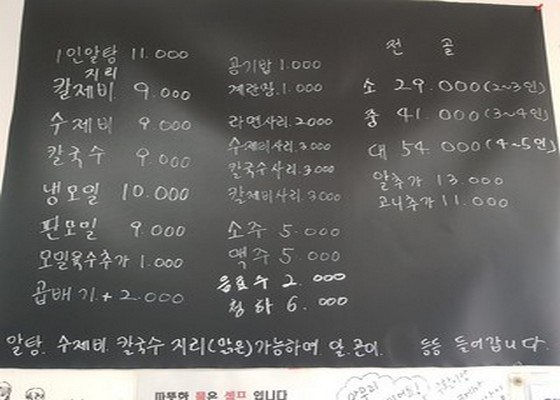 1인알탕 11.000
지리
칼제비 9.000
수제비 9.000
칼국수 9.000
냉모밀 10.000
판모밀 9.000
모밀육수추가 1.000
곱배기 + 2.000
공기밥 1.000
계란장 1.000
라면사리 2000
수제비사리 3.000
칼국수사리 3.000
칼제비사리 3000
소주 5.000
맥주 5.000
음료수 2.000
청하 6.000
전 골
소 29.000(2~3인)
중 41.000(3~4인)
대 54.000(4~5인)
알추가 13.000
고니추가 11.000
알탕. 수제비. 칼국수 지리(맑은)가능하며 알.곤이. 등등 들어갑니다.
따뜻한 물은 셀프 입니다